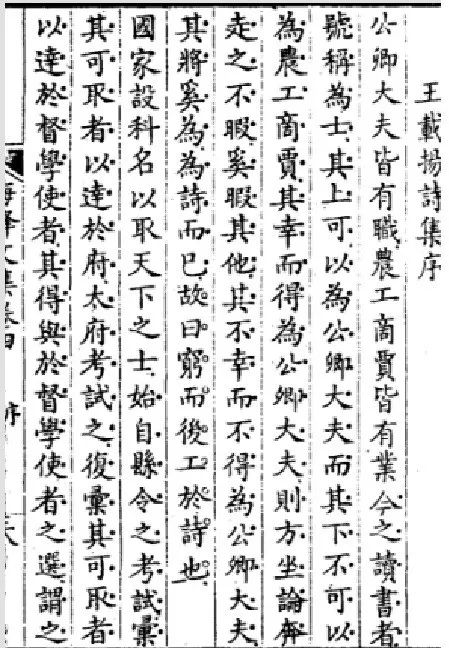 王載揚詩集序
公卿大夫皆有職農工商賈皆有業今之讀書者
號稱為士其上可以為公卿大夫而其下不可以
為農工商賈其幸而得為公卿大夫則方坐論奔
走之不暇奚暇其他其不幸而不得為公卿大夫
其將奚為為詩而已故曰窮而後工於詩也
國家設科名以取天下之士始自縣令之考試彙
其可取者以達於府太府考試之復彙其可取者
以達於督學使者其得與於督學使者之選謂之